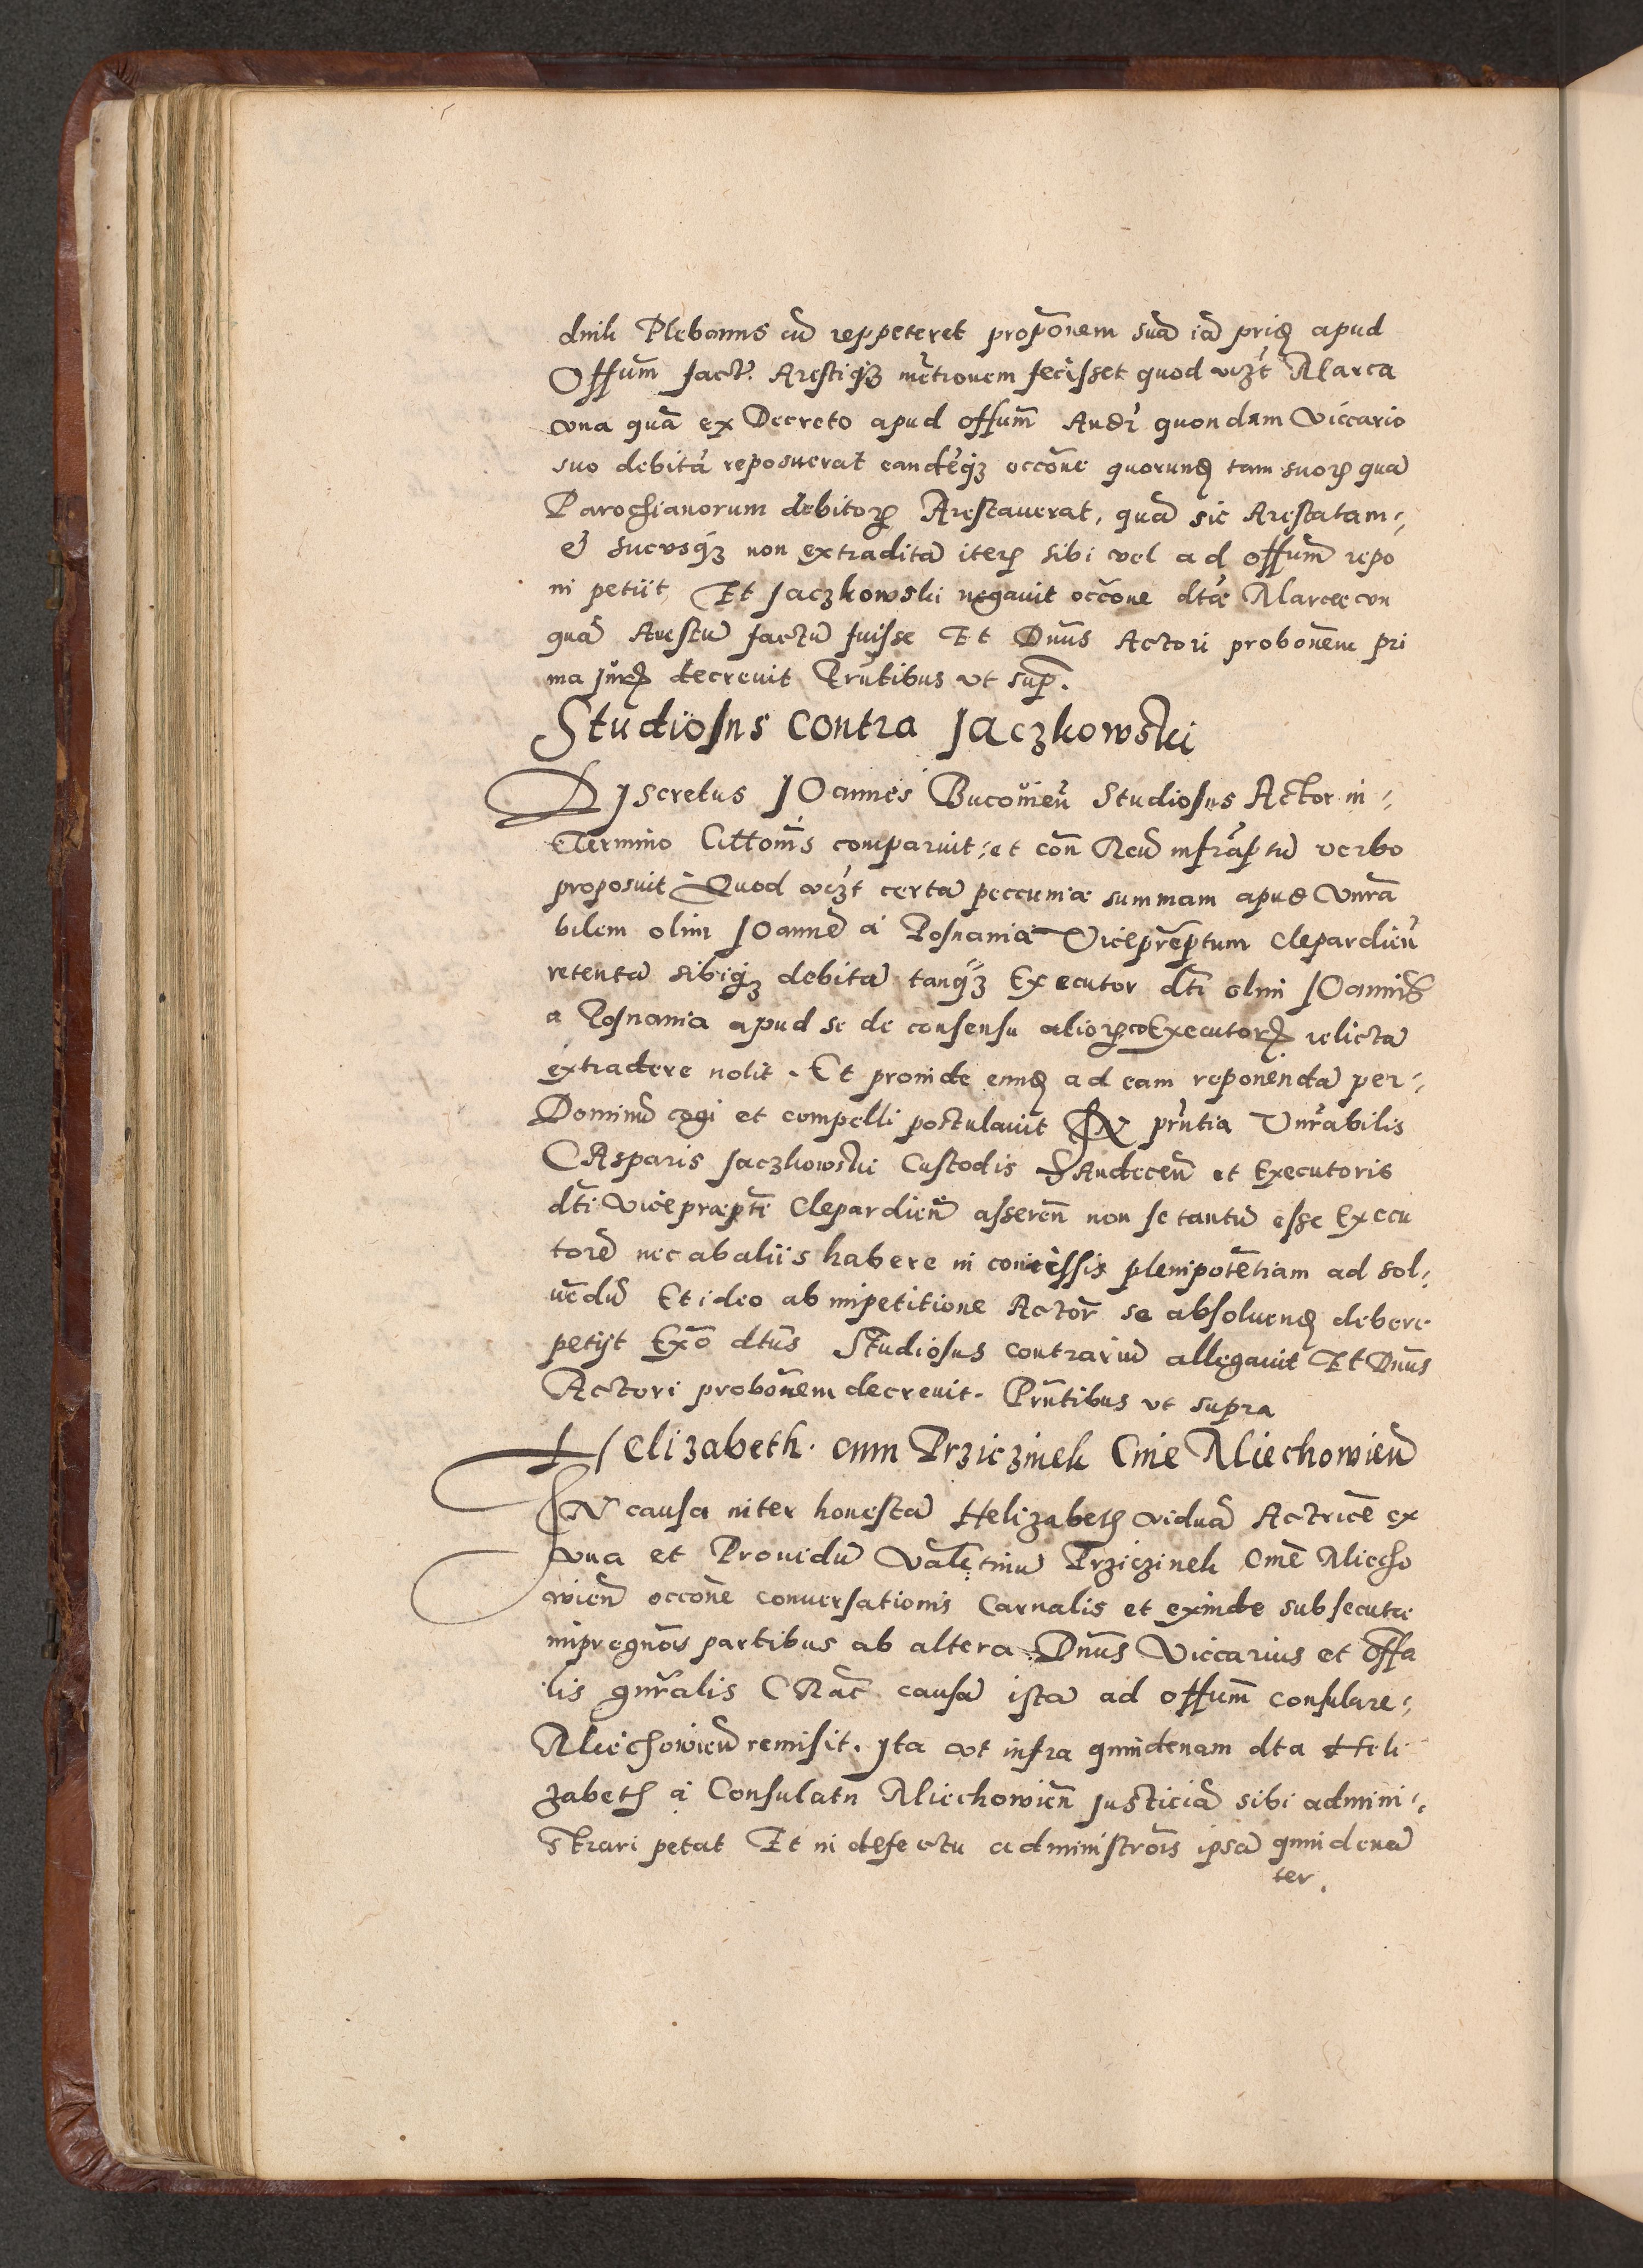 dnik Plebanus cū reppeteret propōnem suā iā priꝯ apud
Offūm factā. Arestiqꝫ mētionem fecisset quod vizt Marca
vna quā ex Decreto apud offūm Andꝛ quondam Viccario
suo debitā reposuerat eandēqꝫ occōne quorundꝫ tam suoꝝ quā
Parochianorum debitoꝝ Arestauerat, quā sic Arestatam
et hucvsqꝫ non extraditā iteꝝ sibi vel ad offūm repo
ni petiit, Et Jaczkowski negauit occōne dtæ Marcæ vn
quā Arestū factū fuisse Et Dnūs Actori probōnem pri
ma Juridꝫ decreuit Pñtibus vt sup̄.
Studiosus contra Jaczkowski
DJscretus JOannes Bucouieñ Studiosus Actor in
Termino Cittōnis comparuit, et coñ Reū infrāptū verbo
proposuit Quod vizt certā peccuniæ summam apud Vnrā
bilem olim JOannē à Posnania Viceprēptum Clepardieñ
retentā sibiqꝫ debitā tanqꝫ Executor dti olim JOannis
a Posnania apud se de consensu alioꝝ coExecutoꝝ relictā
extradere nolit. Et proinde eundꝫ ad eam reponendā per
Dominū cogi et compelli postulauit IN pñtia Vnrābilis
CAsparis Jaczkowski Custodis Sandeceñ et Executoris
dti vicepræpti Clepardieñ asserēn non se tantū esse Execu
torē nec ab aliis habere in concessis plenipotētiam ad sol
uēdū Et ideo ab impetitione Actoꝝ se absoluendꝫ debere
petijt Exō dtus Studiosus contrariū allegauit Et Dnūs
Actori probōnem decreuit. Pñtibus vt supra
Helizabeth. cum Prziczinek Ciue Miechowieñ
IN causa inter honestā Helizabeth viduā Actricē ex
vna et Prouidū Valētinū Prziczinek Ciuē Miecho
wieñ occōne conuersationis Carnalis et exinde subsecutæ
impregnōis partibus ab altera. Dnūs Viccarius et offa
lis gnrālis CRac̄. causā istā ad offūm consulare
Miechowieñ remisit. Jta vt infra quindenam dta Heli
zabeth à Consulatu Miechowieñ Justiciā sibi admini
strari petat Et in defectu administrōis ipsā quindenā
ter.